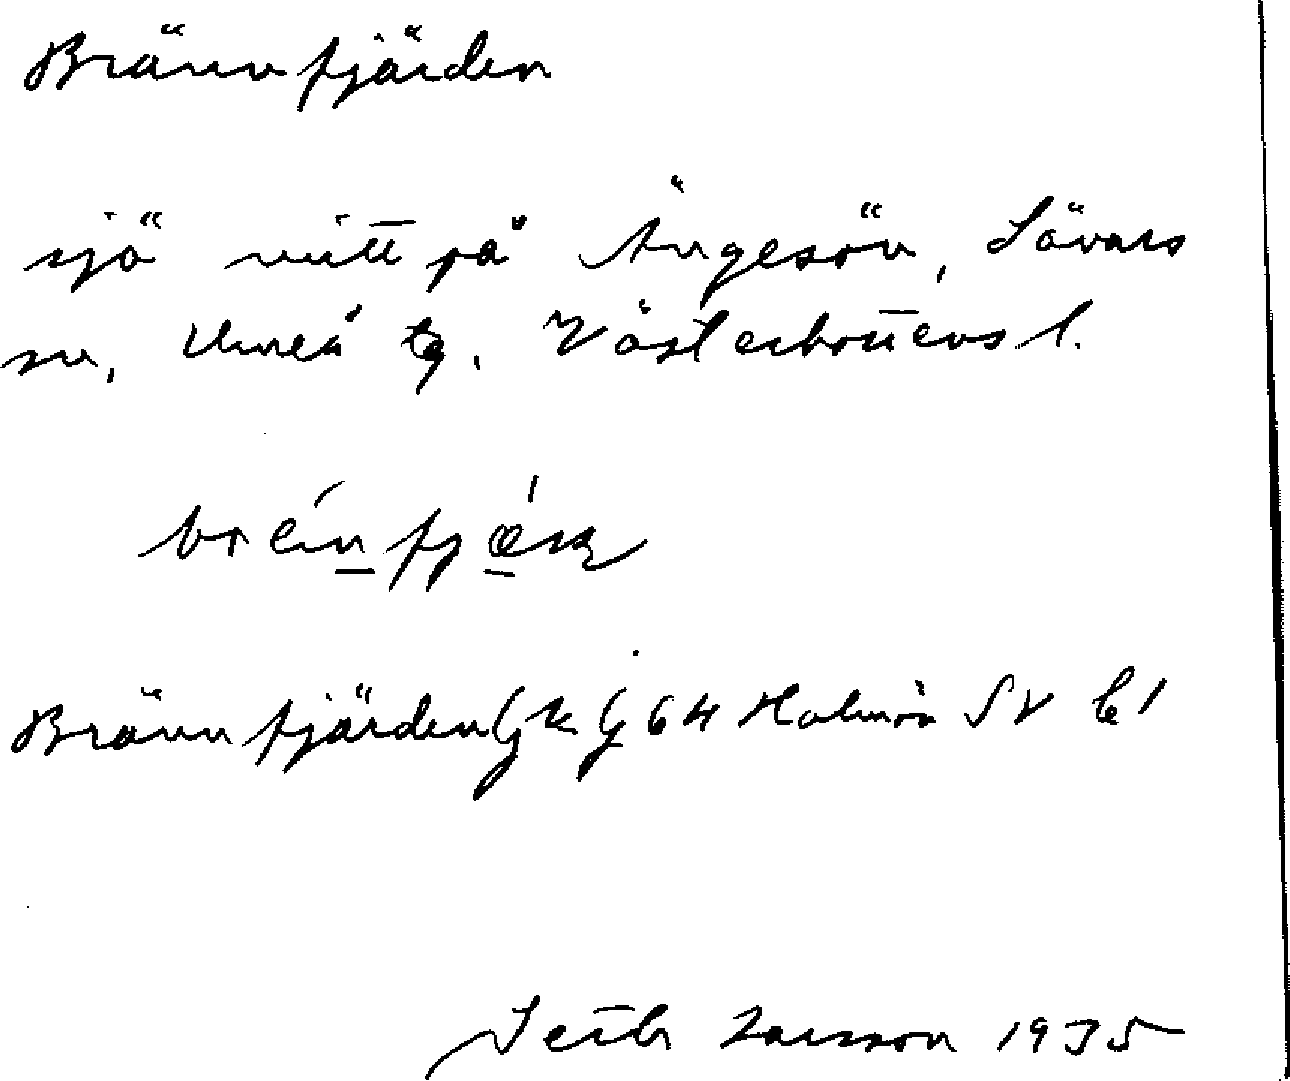 Brännfjärden
sjö mitt på Ängesön, Sävars
sn, Umeå tg. Västerbottens l.
Brännfjärden GK G 64 Holmön SV C1
Larsson 1935